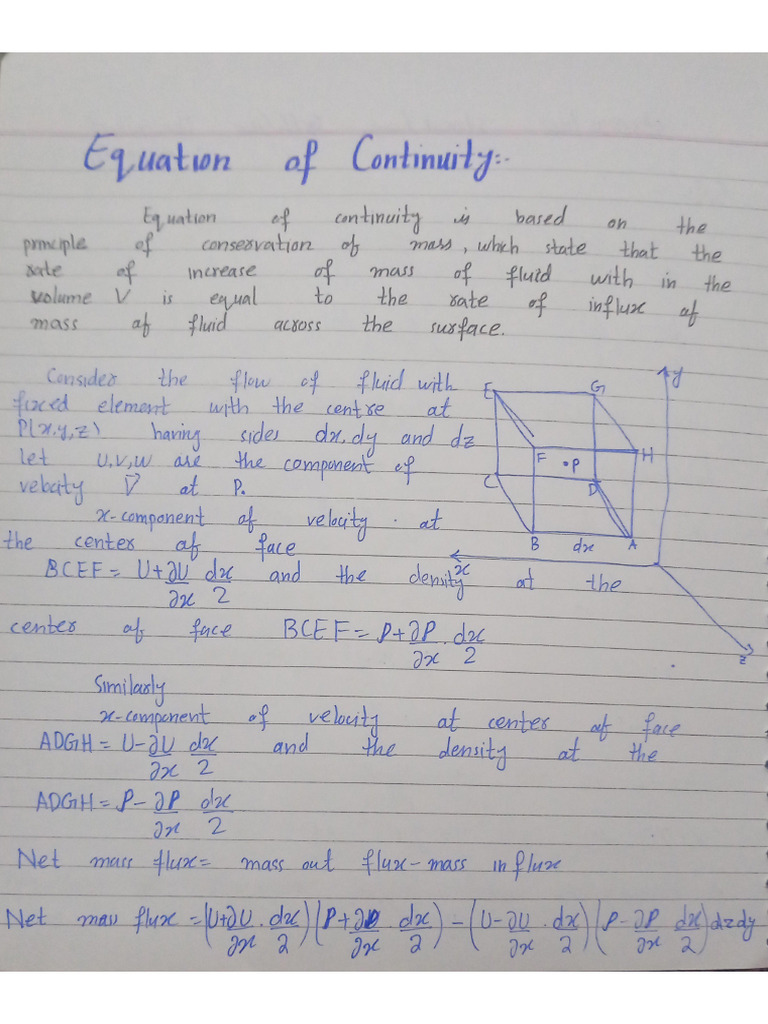 Equation of Continuity:-
Equation of continuity is based on the
principle of conservation of mass, which state that the
rate of increase of mass of fluid with in the
volume V is equal to the rate of influx of
mass of fluid across the surface.
Consider the flow of fluid with
fixed element with the centre at
P(x,y,z) having sides dx,dy and dz
let U,V,W are the component of
velocity V⃗ at P.
x-component of velocity at
the center of face
BCEF = U+∂U/∂x dx/2 and the density at the
center of face BCEF = ρ+∂ρ/∂x . dx/2
Similarly
x-component of velocity at center of face
ADGH = U-∂U/∂x dx/2 and the density at the
ADGH = ρ-∂ρ/∂x dx/2
Net mass flux = mass out flux - mass in flux
Net mass flux = (U+∂U/∂x . dx/2)(ρ+∂ρ/∂x . dx/2) - (U-∂U/∂x . dx/2)(ρ-∂ρ/∂x dx/2)dzdy
E
G
y
F
.P
H
C
D
B
dx
A
x
z